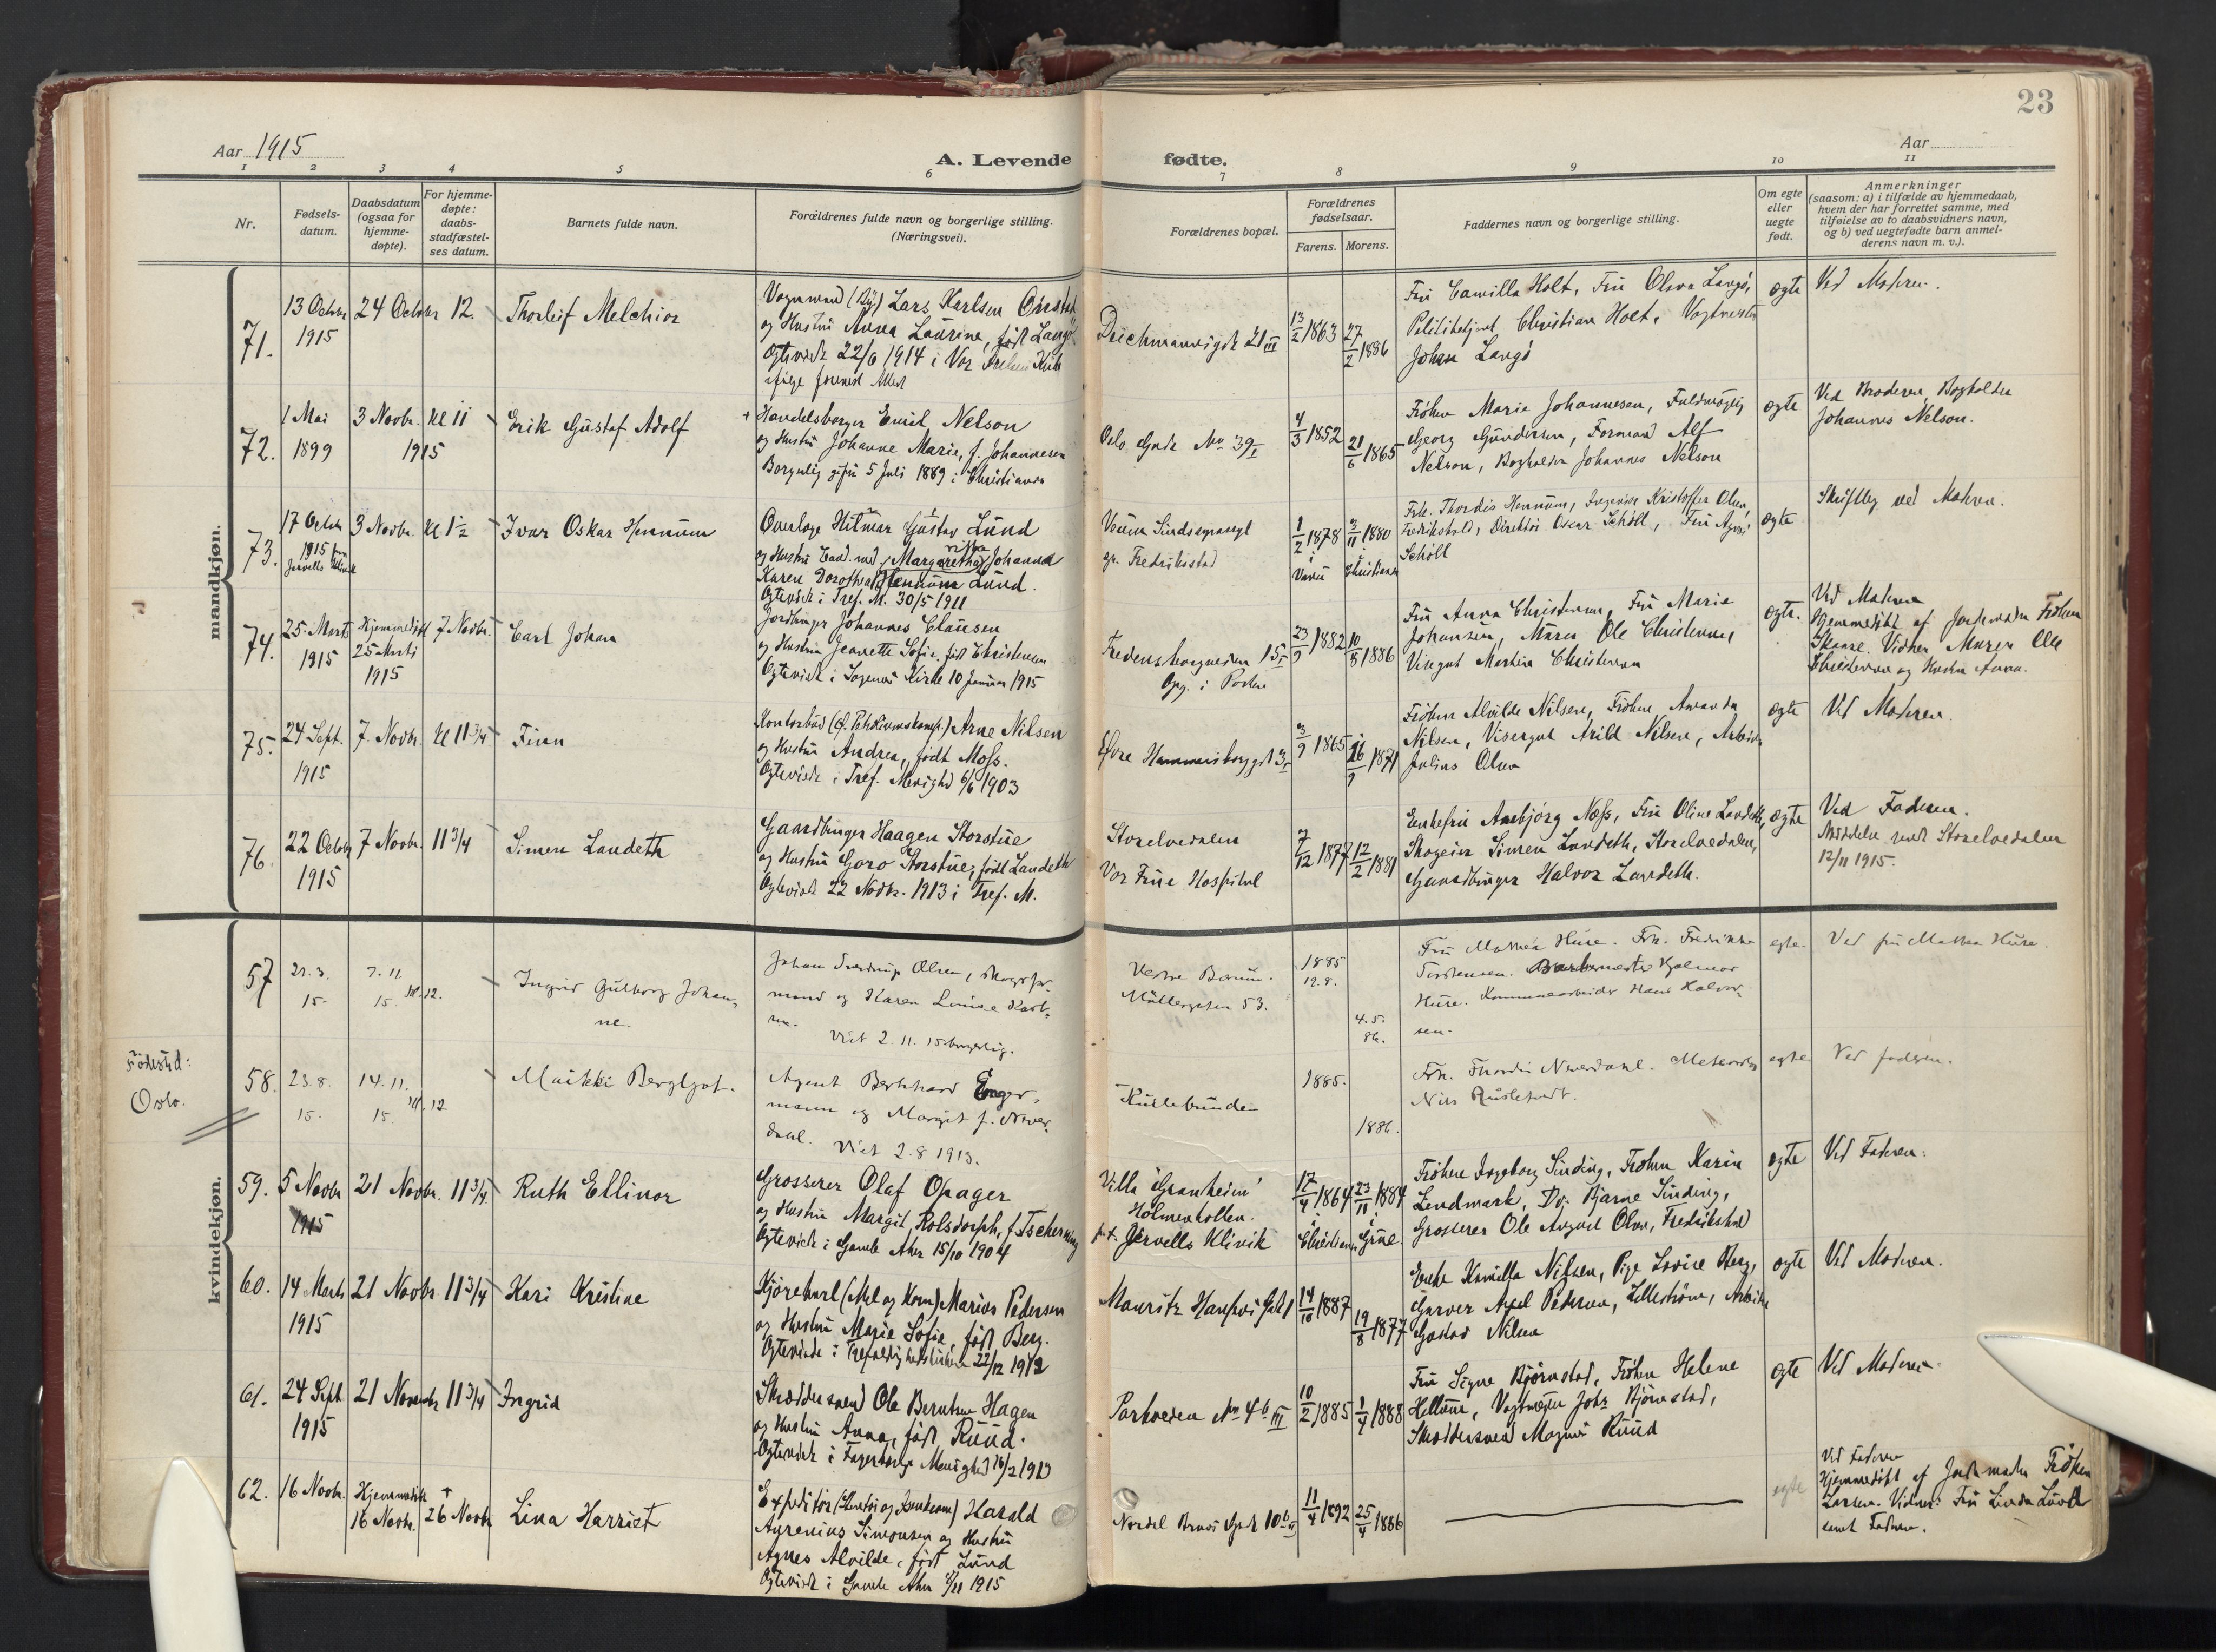 23
Aar 1915
A. Levende fødte.
Aar
1 2 3 4 5 6 7 8 9 10 11
Nr.
Fødsels-
datum.
Daabsdatum
(ogsaa for
hjemme-
døpte).
For hjemme-
døpte:
daabs-
stadfæstel-
ses datum.
Barnets fulde navn.
Forældrenes fulde navn og borgerlige stilling.
(Næringsvei).
Forældrenes bopæl.
Forældrenes
fødselsaar.
Farens. Morens.
Faddernes navn og borgerlige stilling.
Om egte
eller
uegte
født.
Anmerkninger
(saasom: a) i tilfælde av hjemmedaab,
hvem der har forrettet samme, med
tilføielse av to daabsvidners navn,
og b) ved uegtefødte barn anmel-
derens navn m. v.).
mandkjøn.
71.
13 Octobr
1915
24 Octobr 12.
Thorleif Melchior
Vognmand (By) Lars Karlsen
og Hustru Anna Laurine, født
Ogteviede 22/6 1914 i Vor Frelsers Kirke
ifølge forevist Attest
Deichmannsgt 21 III
13/2 1863
27/2 1886
Fru Camilla Holt, Fru Olava Langö,
Politibetjent Christian Holt,
Johan Langö
ogte
Ved Moderen.
72.
1 Mai
1899
3 Novbr. Kl 11
1915
Erik Gustaf Adolf
+ Handelsborger Emil Nelson
og Hustru Johanne Marie, f. Johannesen
Borgerlig gifte 5 Juli 1889 i Christiania
Oslo Gade No 39 I
4/3 1852
21/6 1865
Frøken Marie Johannesen, Fuldmægtig
Georg Gundersen, Formand Alf
Nelson, Bogholder Johannes Nelson
ogte
Ved Broderen, Bogholder
Johannes Nelson.
73.
17 Octbr
1915
3 Novbr. Kl 1½
Ivar Oskar Hennum
Overlæge Hilmar Gustav Lund
og Hustru Cand. med. Margaretha Johanna
Karen Dorothea Hennum Lund.
Ogteviede i Tref. M. 30/5 1911
Veum Sindssygeasyl
pr. Fredrikstad
1/2 1878
i
3/11 1880
i
Christiania
Frk. Thordis Hennum, Ingeniør Kristoffer Olsen,
Fredrikshald, Direktør Oscar Schöll, Fru Agnes
Schöll
ogte
Skriftlig ved Moderen.
74.
25 Marts
1915
Hjemmedøbt
25 Marts
1915
7 Novbr.
Carl Johan
Jordbruger Johannes Clausen
og Hustru Jeanette Sofie, født Christensen
Ogteviede i Kirke 10 Januar 1915
Fredensborgveien 15 I
Opg. i Porten
23/9 1882
10/8 1886
Fru Anna Christensen, Fru Marie
Johansen, Murer Ole Christensen,
Visegut Martin Christensen
ogte.
Ved Moderen
Hjemmedøbt af Jordmoder Frøken
Skaare. Vidner Murer Ole
Christensen og Hustru Anna.
75.
24 Sept.
1915
7. Novbr. Kl 11 3/4
Finn
Kontorbud Arne Nilsen
og Hustru Andrea, født Moss.
Ogteviede i Tref. Menighed 6/6 1903
Øvre Hammersborggt 3 I
3/9 1865
16/9 1871
Frøken Alvilde Nilsen, Frøken Amanda
Nilsen, Visergut Arild Nilsen, Arbeider
Julius Olsen
ogte
Ved Moderen.
76.
22 Octobr
1915
7 Novbr. 11 3/4
Simen Landeth
Gaardbruger Haagen Storstue
og Hustru Goro Storstue, født Landeth
Ogteviede 22 Novbr. 1913 i Tref. M.
Storelvedalen
Vor Frue Hospital
7/12 1877
12/2 1881
Enkefru Anebjørg Næss, Fru Oline Landeth,
Skogeier Simen Landeth, Storelvedalen,
Gaardbruger Halvor Landeth.
ogte
Ved Faderen.
Meddelelse sendt Storelvedalen
12/11 1915.
kvindekjøn.
57
21.3.
15.
7.11.
15. Kl. 12.
Ingrid Gulborg Johan-
ne.
Johan Olsen,
mand og Karen Louise
Viet 2.11.15 borgerlig.
Vestre Bærum.
Møllergaten 53.
1885
19.8.
4.5.
86.
Fru Mathea Huse. Frk. Fredrikke
Torstensen. Hjalmar
Huse. Kommunearbeider Hans Halvor-
sen.
egte.
Ved fru Mathea Huse.
Fødested:
Oslo.
58.
23.8.
15.
14.11.
15. Kl. 12.
Maikki Bergljot.
Agent Bernhard Enger-
mann og Margit f. Never-
dahl. Viet 2.8 1913.
1885.
1886.
Frk. Thordis Neverdahl.
Nils
egte
Ved faderen.
59.
5 Novbr
1915
21 Novbr. 11 3/4
Ruth Ellinor
Grosserer Olaf Opager
og Hustru Margit Rolsdorph, f. Tscherning
Ogteviede i Gamle Aker 15/10 1904
Villa "Granheim"
Holmenkollen.
p.t. Jervells Klinik
17/4 1864
i
23/11 1884
i
Frøken Ingeborg Sinding, Frøken Karin
Lendmark, Dr. Bjarne Sinding,
Grosserer Ole August Olsen, Fredrikshald
ogte
Ved Faderen.
60.
14 Marts
1915
21 Novbr 11 3/4
Kari Kristine
Kjørekarl (Mel og Korn) Marius Pedersen
og Hustru Marie Sofie, født Berg.
Ogteviede i Trefoldighedskirken 22/12 1912
Mauritz Hansens Gade 1
14/10 1887
19/8 1877
Enke Kamilla Nilsen, Pige Lovise Berg,
Garver Axel Pedersen, Lillestrøm, Arbeider
Gustav Nilsen
ogte
Ved Moderen.
61.
24 Sept
1915
21 Novembr 11 3/4
Ingrid
Skræddersvend Ole Berntsen Hagen
og Hustru Anna, født Ruud.
Ogteviede i Fagerborg Menighed 16/2 1913
Parkveien No 4 b III
10/2 1885
1/4 1888
Fru Signe Bjørnstad, Frøken Helene
Hellum, Vognmester Johs Bjørnstad,
Skræddersvend Magnus Ruud
ogte
Ved Moderen.
62.
16 Novbr.
Hjemmedøbt
16 Novbr.
+
26 Novbr
Lina Harriet
Expeditør Harald
Simonsen og Hustru
Agnes Alvilde, født Lund
Ogteviede i Gamle Aker 1915
Nordal Bruns Gade 10 b II
11/4 1892
25/4 1886
egte
Ved Faderen
Hjemmedøbt af Jordemoder Frøken
Larsen. Vidner: Fru Linda Lund
samt Faderen.